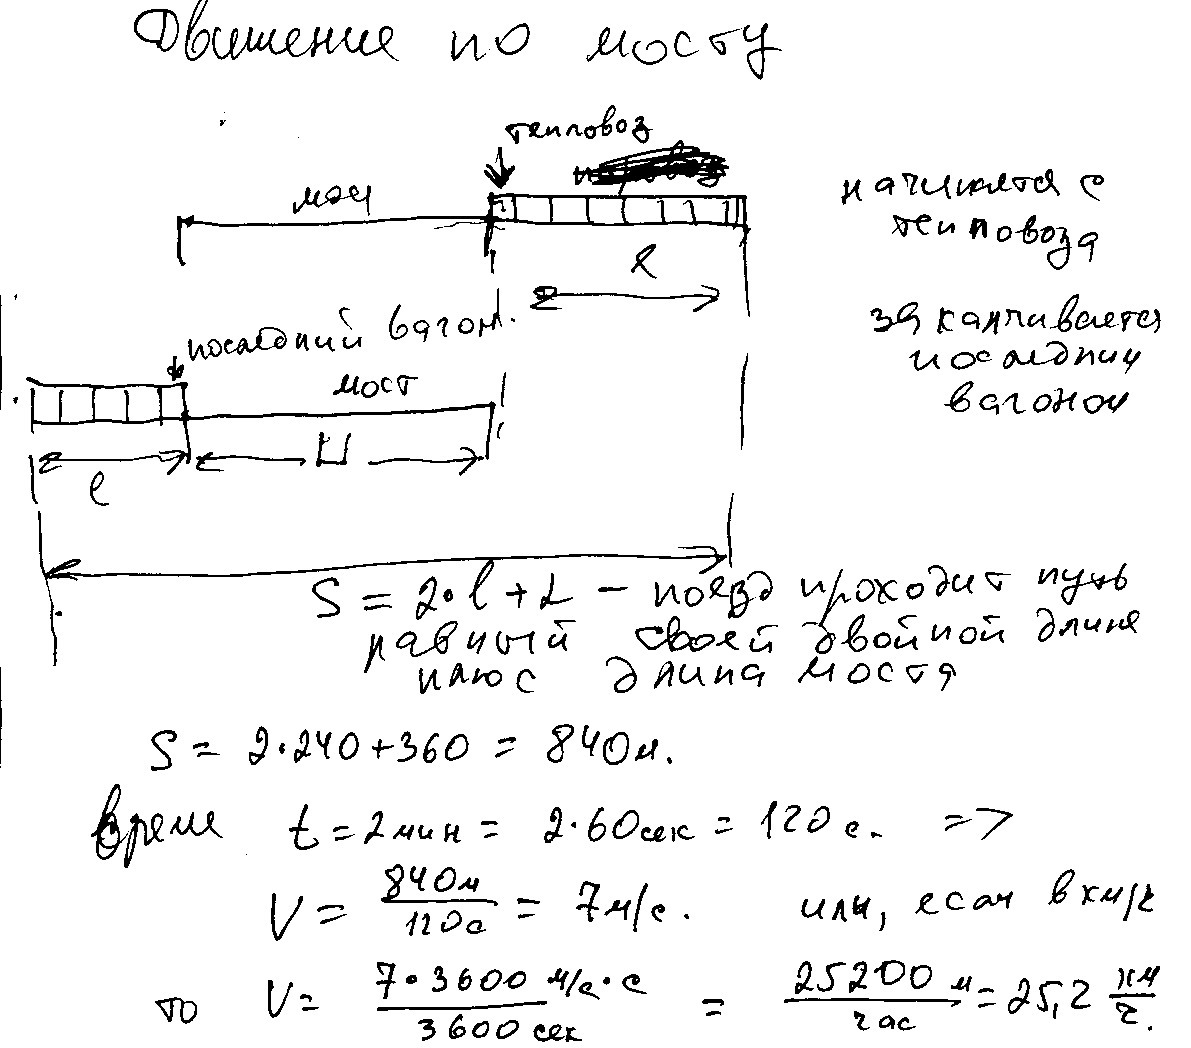 Движение по мосту
тепловоз
мост
начинается с
тепловоза
l
последний вагон.
заканчивается
последним
вагоном
мост
l
L
S = 2·l + L – поезд проходит путь
равный своей двойной длине
плюс длина моста
S = 2·240+360 = 840м.
Время t = 2мин = 2·60сек = 120с. =>
V = 840м/120с = 7м/с. или, если в км/ч
то V = 7·3600 м/с·с / 3600 сек = 25200 м / час = 25,2 км/ч.